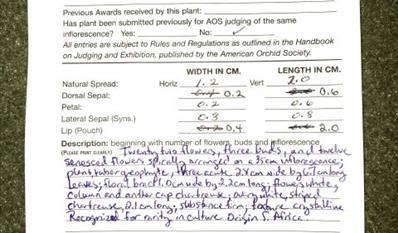 Previous Awards received by this plant:
Has plant been submitted previously for AOS judging of the same
inflorescence? Yes: No: ✓
All entries are subject to Rules and Regulations as outlined in the Handbook
on Judging and Exhibition, published by the American Orchid Society.
WIDTH IN CM. LENGTH IN CM.
Natural Spread: Horiz 1.2 Vert 2.0
Dorsal Sepal: 0.2 0.6
Petal: 0.2 0.6
Lateral Sepal (Syns.) 0.3 0.8
Lip (Pouch) 0.4 2.0
Description: beginning with number of flowers, buds and inflorescence
(PLEASE PRINT CLEARLY) Twenty two flowers, three buds, and twelve
senesced flowers spirally arranged on a 35cm inflorescence;
plant tuber geophyte, three acute 2.8cm wide by 67cm long
leaves; floral bract 1.0cm wide by 2.2cm long; flowers white,
column and anther cap chartreuse; ovary white, striped
chartreuse, 2.1cm long; substance firm; texture crystalline
Recognized for rarity in culture Origin S. Africa